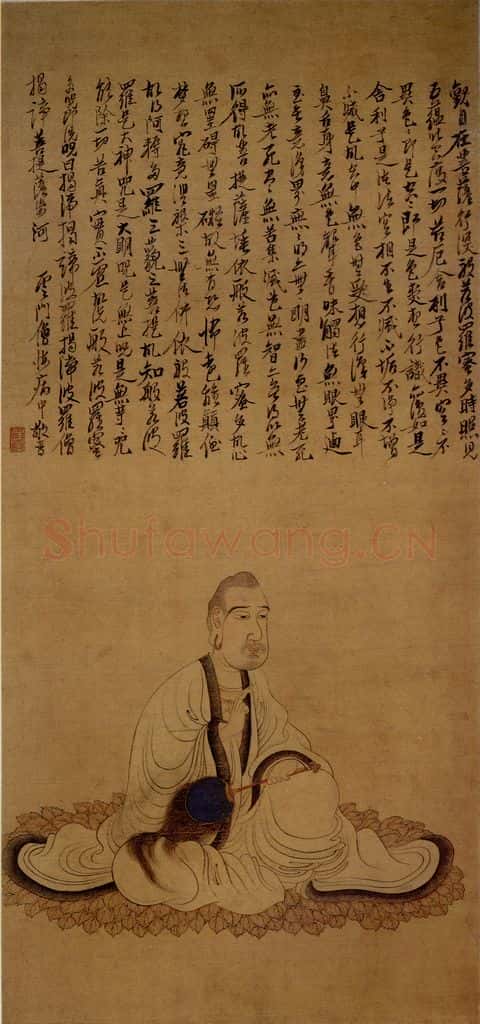 觀自在菩薩行深般若波羅蜜多時照見
五蘊皆空度一切苦厄舍利子色不異空空不
異色色即是空空即是色受想行識亦復如是
舍利子是諸法空相不生不滅不垢不淨不增
不減是故空中無色無受想行識無眼耳
鼻舌身意無色聲香味觸法無眼界乃
至無意識界無無明亦無無明盡乃至無老死
亦無老死盡無苦集滅道無智亦無得以無
所得故菩提薩埵依般若波羅蜜多故心
無罣礙無罣礙故無有恐怖遠離顛倒
夢想究竟涅槃三世諸佛依般若波羅
故得阿耨多羅三藐三菩提故知般若波
羅是大神咒是大明咒是無上咒是無等等咒
能除一切苦真實不虛故說般若波羅蜜
多咒即說咒曰揭諦揭諦波羅揭諦波羅僧
揭諦菩提薩婆訶 雲門僧悔病中敬書
Shufawang.CN